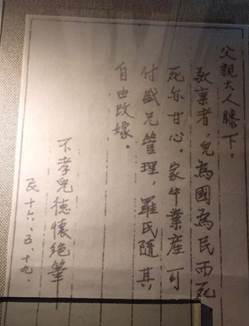 父親大人膝下。
敬稟者，兒為國為民而死
死亦甘心。家中業産，可
付盛兄管理，羅氏隨其
自由改嫁。
不孝兒德懷絕筆
民十六、五、十九、